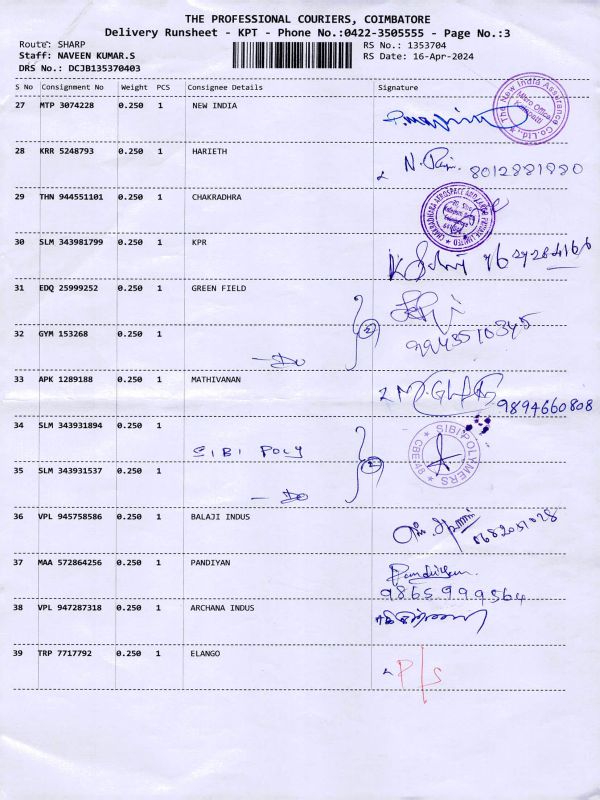 THE PROFESSIONAL COURIERS, COIMBATORE
Delivery Runsheet - KPT - Phone No.:0422-3505555 - Page No.:3
Route: SHARP RS No.: 1353704
Staff: NAVEEN KUMAR.S RS Date: 16-Apr-2024
DRS No.: DCJB135370403
S No Consignment No Weight PCS Consignee Details Signature
27 MTP 3074228 0.250 1 NEW INDIA
The New India Assurance Co.Ltd. Micro Office
28 KRR 5248793 0.250 1 HARIETH
8012881880
29 THN 944551101 0.250 1 CHAKRADHRA
30 SLM 343981799 0.250 1 KPR
31 EDQ 25999252 0.250 1 GREEN FIELD
2
32 GYM 153268 0.250 1
Do 9943510345
33 APK 1289188 0.250 1 MATHIVANAN
9894660808
34 SLM 343931894 0.250 1
SIBI POLY 2 SIBI POLYMERS CBE-48
35 SLM 343931537 0.250 1
Do
36 VPL 945758586 0.250 1 BALAJI INDUS
37 MAA 572864256 0.250 1 PANDIYAN
Pandiyan
9865999564
38 VPL 947287318 0.250 1 ARCHANA INDUS
39 TRP 7717792 0.250 1 ELANGO
P/S